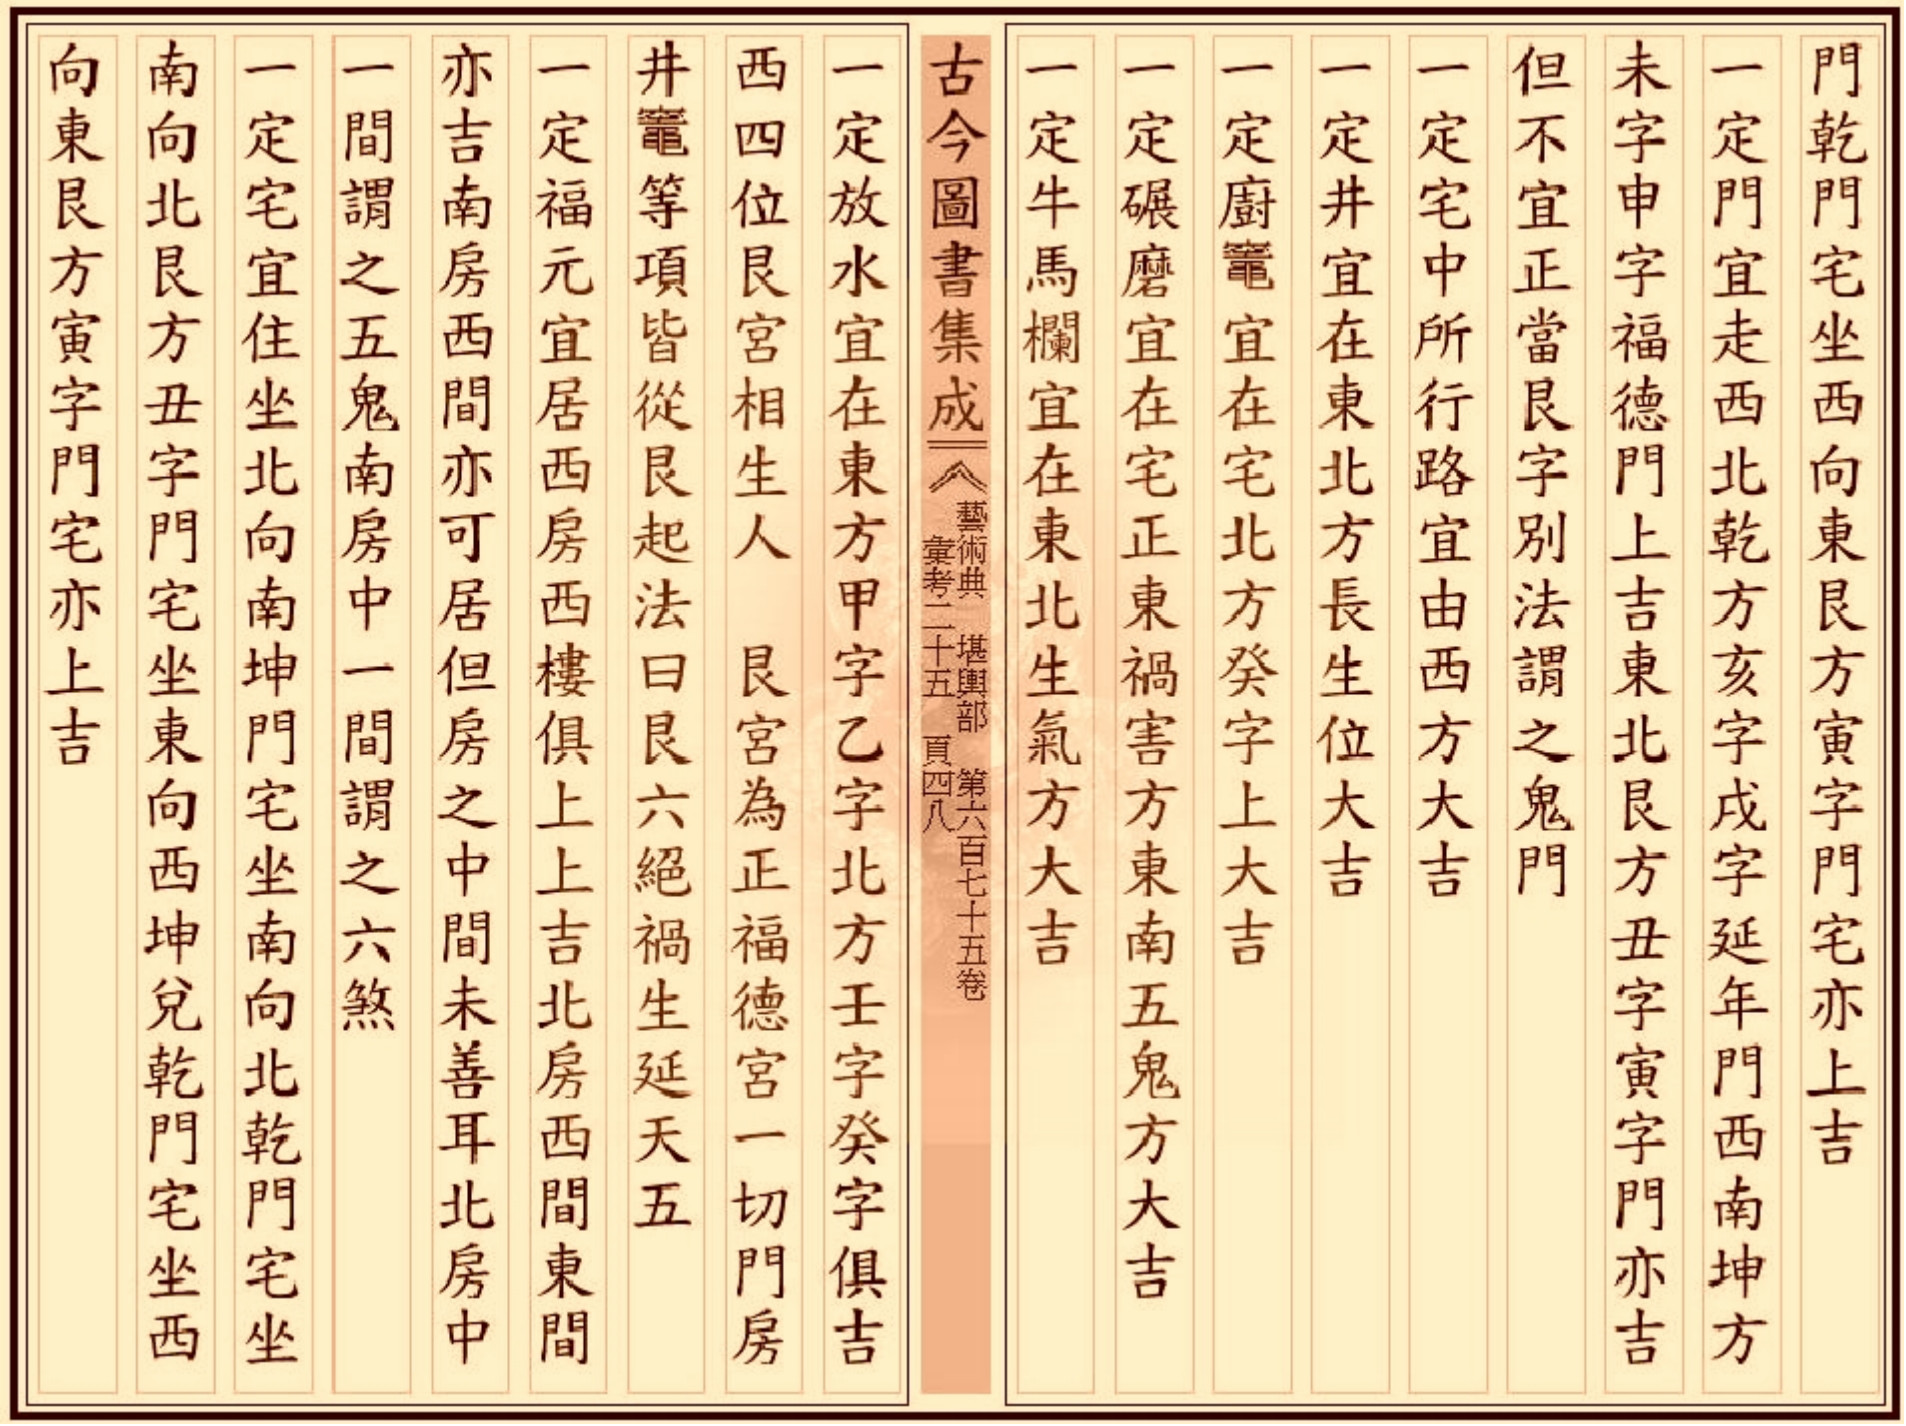 門乾門宅坐西向東艮方寅字門宅亦上吉
一定門宜走西北乾方亥字戌字延年門西南坤方
未字申字福德門上吉東北艮方丑字寅字門亦吉
但不宜正當艮字別法謂之鬼門
一定宅中所行路宜由西方大吉
一定井宜在東北方長生位大吉
一定廚竈宜在宅北方癸字上大吉
一定碾磨宜在宅正東禍害方東南五鬼方大吉
一定牛馬欄宜在東北生氣方大吉
古今圖書集成
藝術典 堪輿部 第六百七十五卷
彙考二十五 頁四八
一定放水宜在東方甲字乙字北方壬字癸字俱吉
西四位艮宮相生人 艮宮為正福德宮一切門房
井竈等項皆從艮起法曰艮六絕禍生延天五
一定福元宜居西房西樓俱上上吉北房西間東間
亦吉南房西間亦可居但房之中間未善耳北房中
一間謂之五鬼南房中一間謂之六煞
一定宅宜住坐北向南坤門宅坐南向北乾門宅坐
南向北艮方丑字門宅坐東向西坤兌乾門宅坐西
向東艮方寅字門宅亦上吉